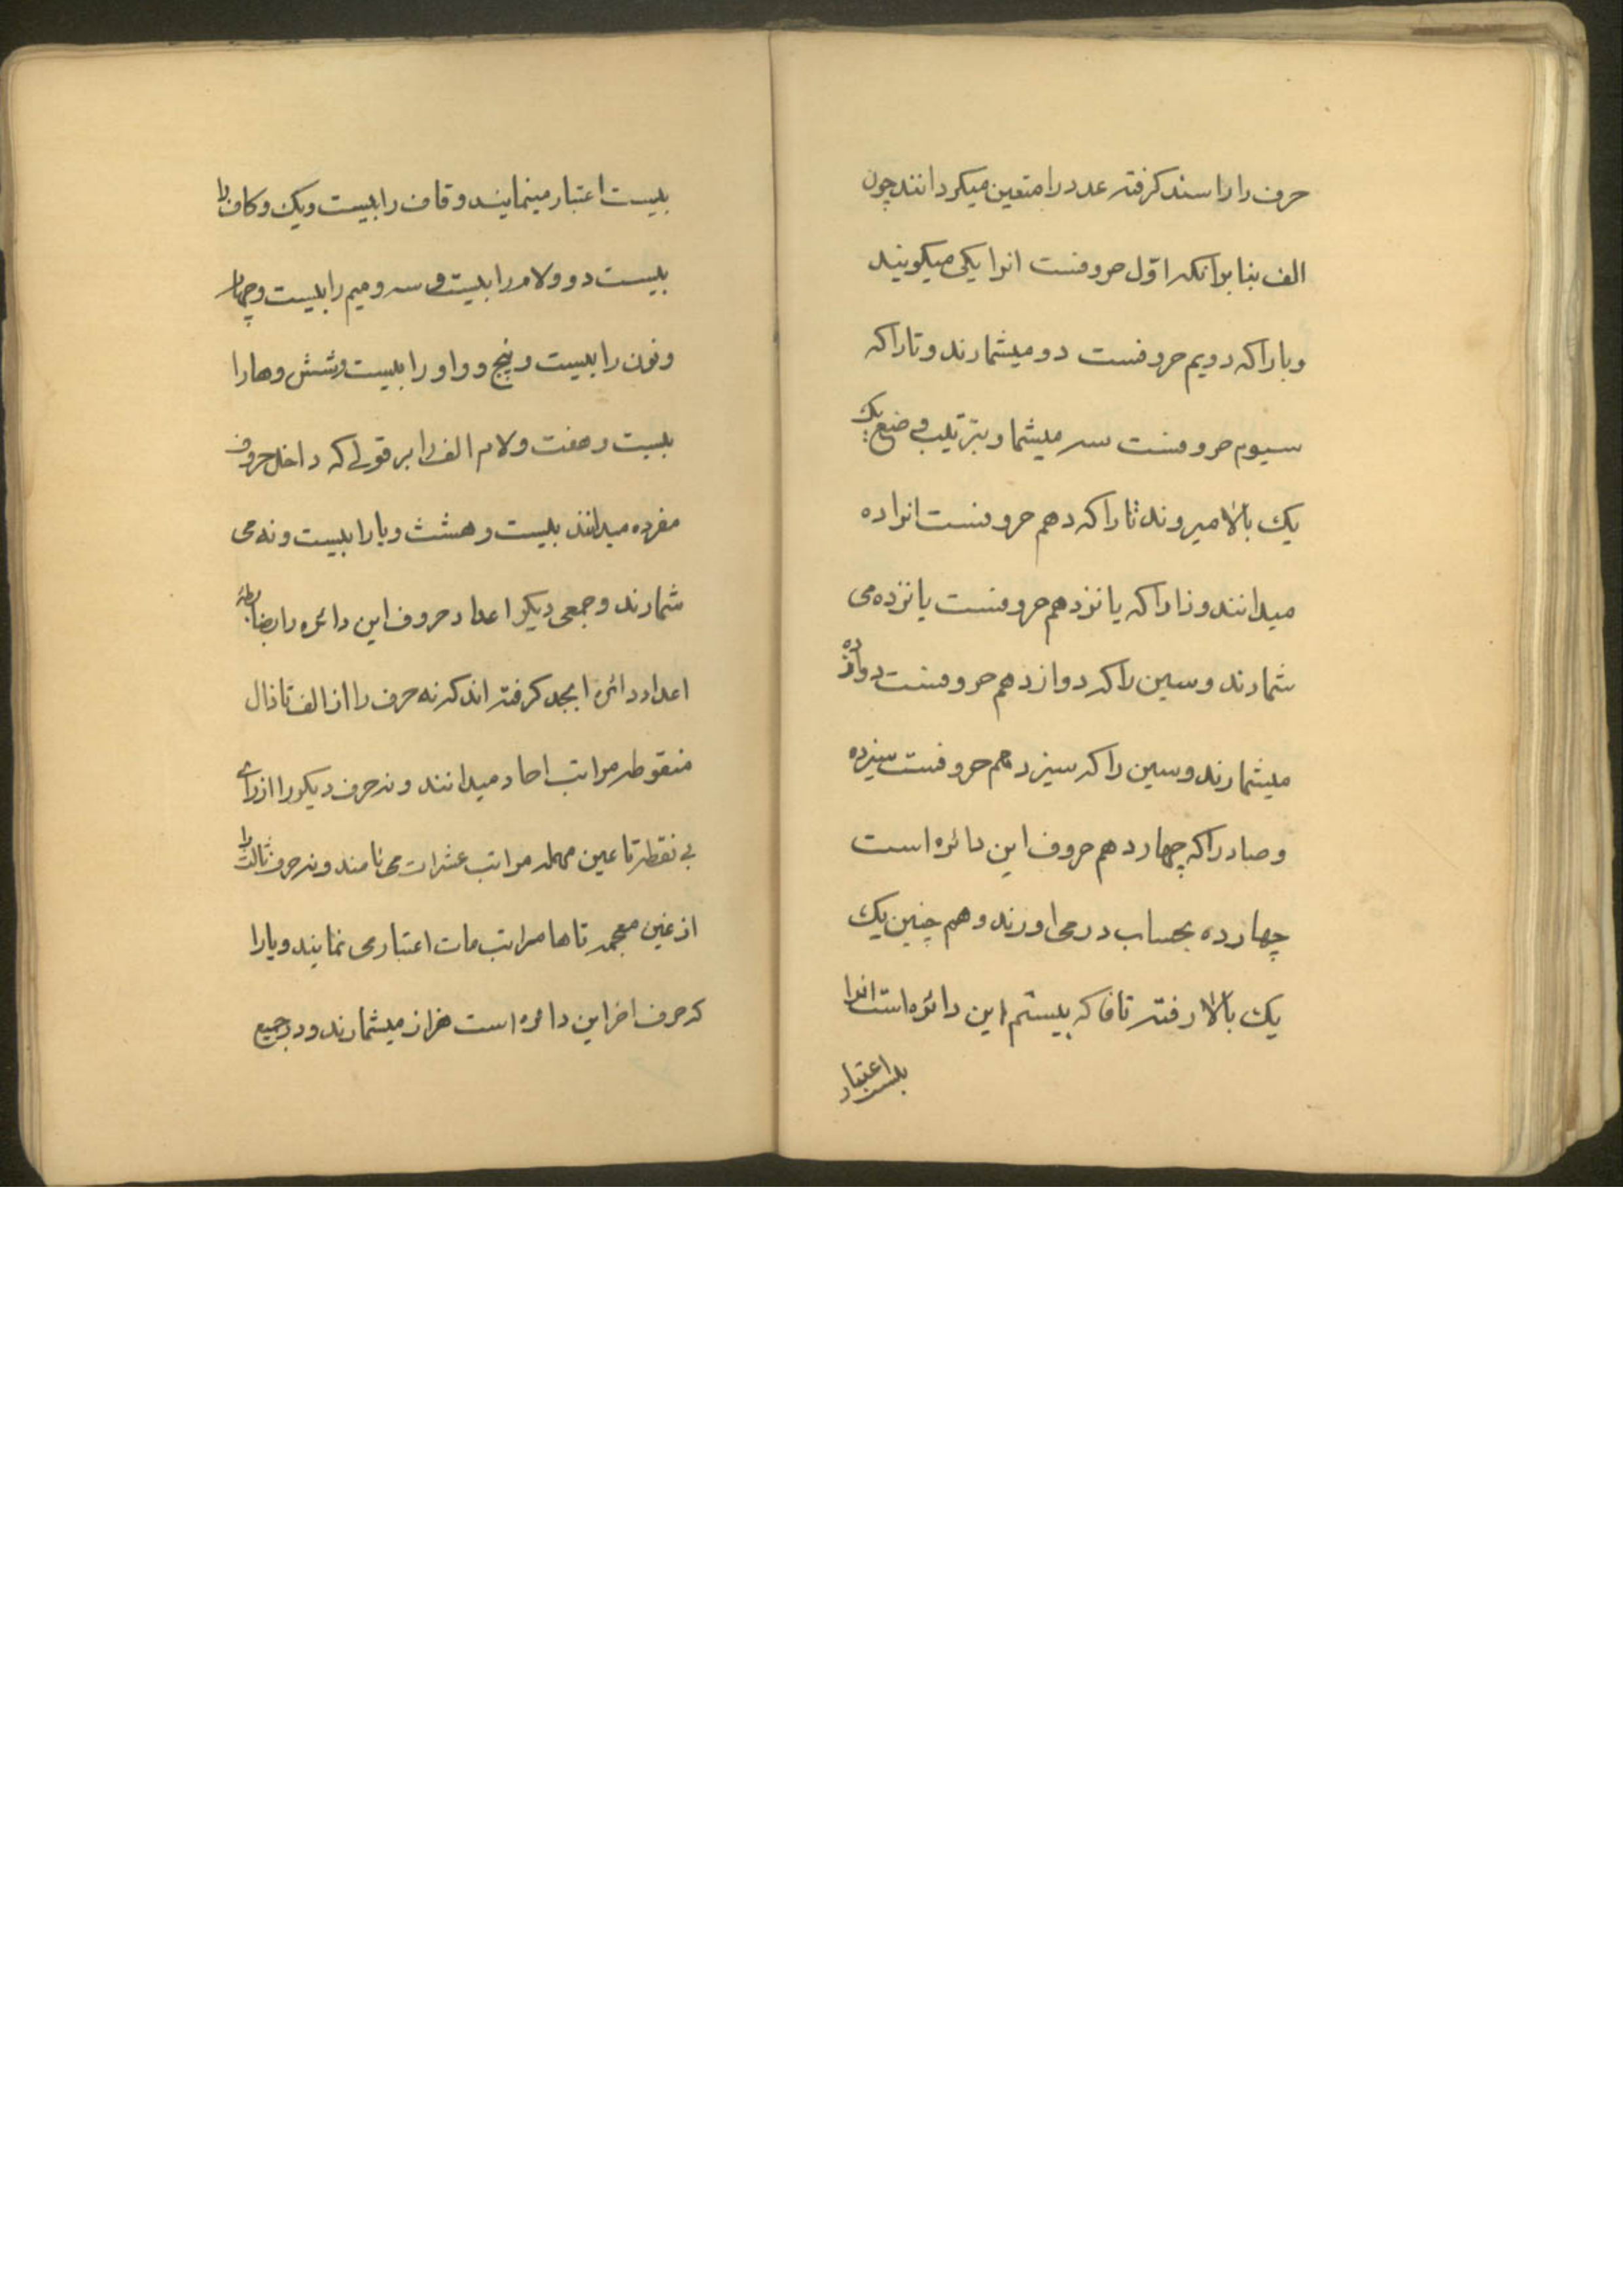 حرف را را سند کرفته عدد را متعین میکردانند چون
الف بنا بر آنکه اوّل حروفست انرا یکی میکویند
وبا را که دویم حروفست دو میشمارند و تا را که
سیوم حروفست سه میشمارد بترتیب وضع یک
یک بالا میروند تا را که دهم حروفست انرا ده
میدانند و زا را که یانزدهم حروفست یانزده می
شمارند و سین را که دوازدهم حروفست دوازده
میشمارند و سین را که سیزدهم حروفست سیزده
وصاد را که چهاردهم حروف این دائره است
چهارده بحساب در می اورند و هم چنین یک
یک بالا رفته تا فا که بیستم این دائره است انرا
بیست اعتبار
بیست اعتبار مینمایند و قاف را بیست ویک و کاف را
بیست دو ولام را بیست و سه و میم را بیست وچهار
ونون را بیست و پنج و واو را بیست وشش وها را
بیست وهفت ولام الف را بر قولی که داخل حروف
مفرده میدانند بیست وهشت ویا را بیست ونه می
شمارند وجمعی دیکر اعداد حروف این دائره را بضابطهٔ
اعداد دائره ابجد کرفته اند که نه حرف را از الف تا ذال
منقوطه مراتب احاد میدانند و نه حرف دیکر را از رای
بی نقطه تا عین مهمله مراتب عشرات می نامند و نه حرف ثالث را
از غین معجمه تا ها مراتب مات اعتبار می نمایند ویا را
که حرف اخر این دائره است هزار میشمارند ودر جمیع